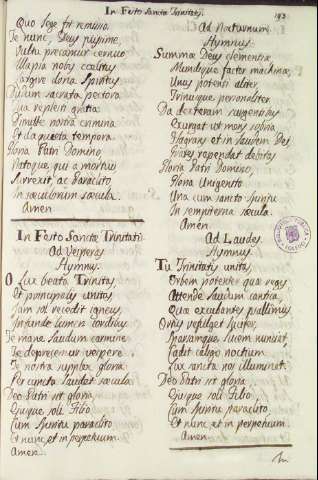 In Festo Sanctæ Trinitatis.
193
Quo lege fit remissio.
Te nunc, Deus piissime,
Vultu precamur cernuo
Illapsa nobis cœlitus
Largire dona Spiritus
Dudum sacrata pectora
Tua replesti gratia
Dimitte nostra crimina
Et da quieta tempora.
Gloria Patri Domino,
Natoque, qui a mortuis
Surrexit, ac Paraclito
In sæculorum sæcula.
Amen.
In Festo Sanctæ Trinitatis
Ad Vesperas
Hymnus.
O lux beata Trinitas,
Et principalis unitas
Jam sol recedit igneus,
Infunde lumen cordibus
Te mane laudum carmine
Te deprecemur vespere
Te nostra supplex gloria
Per cuncta laudet sæcula.
Deo Patri sit gloria
Ejusque soli Filio
Cum Spiritu paraclito
Et nunc, et in perpetuum.
Amen.
Ad Nocturnum
Hymnus.
Summæ Deus clementiæ
Mundique factor machinæ,
Unus potentialiter,
Trinusque personaliter.
Da dexteram surgentibus
Exurgat ut mens sobria
Flagrans et in laudem Dei
Grates rependat debitas
Gloria Patri Domino,
Gloria Unigenito
Una cum Sancto Spiritu
In sempiterna sæcula.
Amen.
Ad Laudes
Hymnus.
Tu Trinitatis unitas
Orbem potenter quæ regis
Attende laudum cantica,
Quæ excubantes psallimus
Ortus refulget lucifer,
Sparsamque lucem nuntiat,
Cadit caligo noctium
Lux sancta nos illuminet.
Deo Patri sit gloria
Ejusque soli Filio
Cum Spiritu paraclito,
Et nunc, et in perpetuum.
Amen.